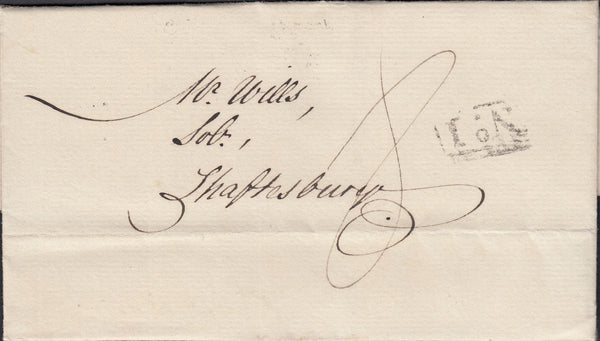 Mr. Wills,
Solr.,
Shaftesbury
8